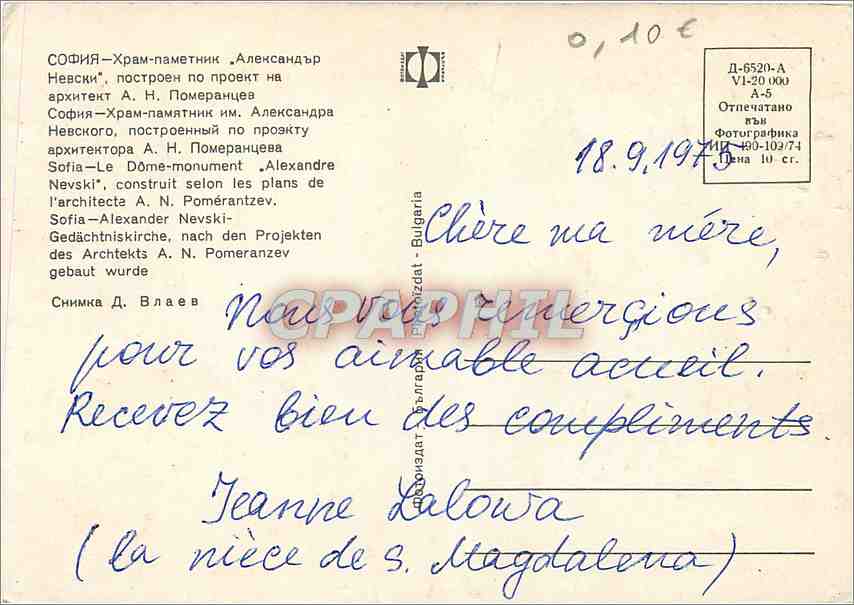 СОФИЯ—Храм-паметник „Александър
Невски“, построен по проект на
архитект А. Н. Померанцев
София—Храм-памятник им. Александра
Невского, построенный по проэкту
архитектора А. Н. Померанцева
Sofia—Le Dôme-monument „Alexandre
Nevski“, construit selon les plans de
l'architecte A. N. Pomérantzev.
Sofia—Alexander Nevski-
Gedächtniskirche, nach den Projekten
des Archtekts A. N. Pomeranzev
gebaut wurde
Снимка Д. Влаев
0,10 €
Д-6520-А
VI-20 000
А-5
Отпечатано
във
Фотографика
ИП 490-109/74
Цена 10 ст.
18.9.1975
Chère ma mére,
Nous vous remerçions
pour vos aimable acueil.
Recevez bien des compliments.
Jeanne Lalowa
(la nièce de S. Magdalena)
Фотоиздат - България Photoizdat - Bulgaria
CPAPHIL